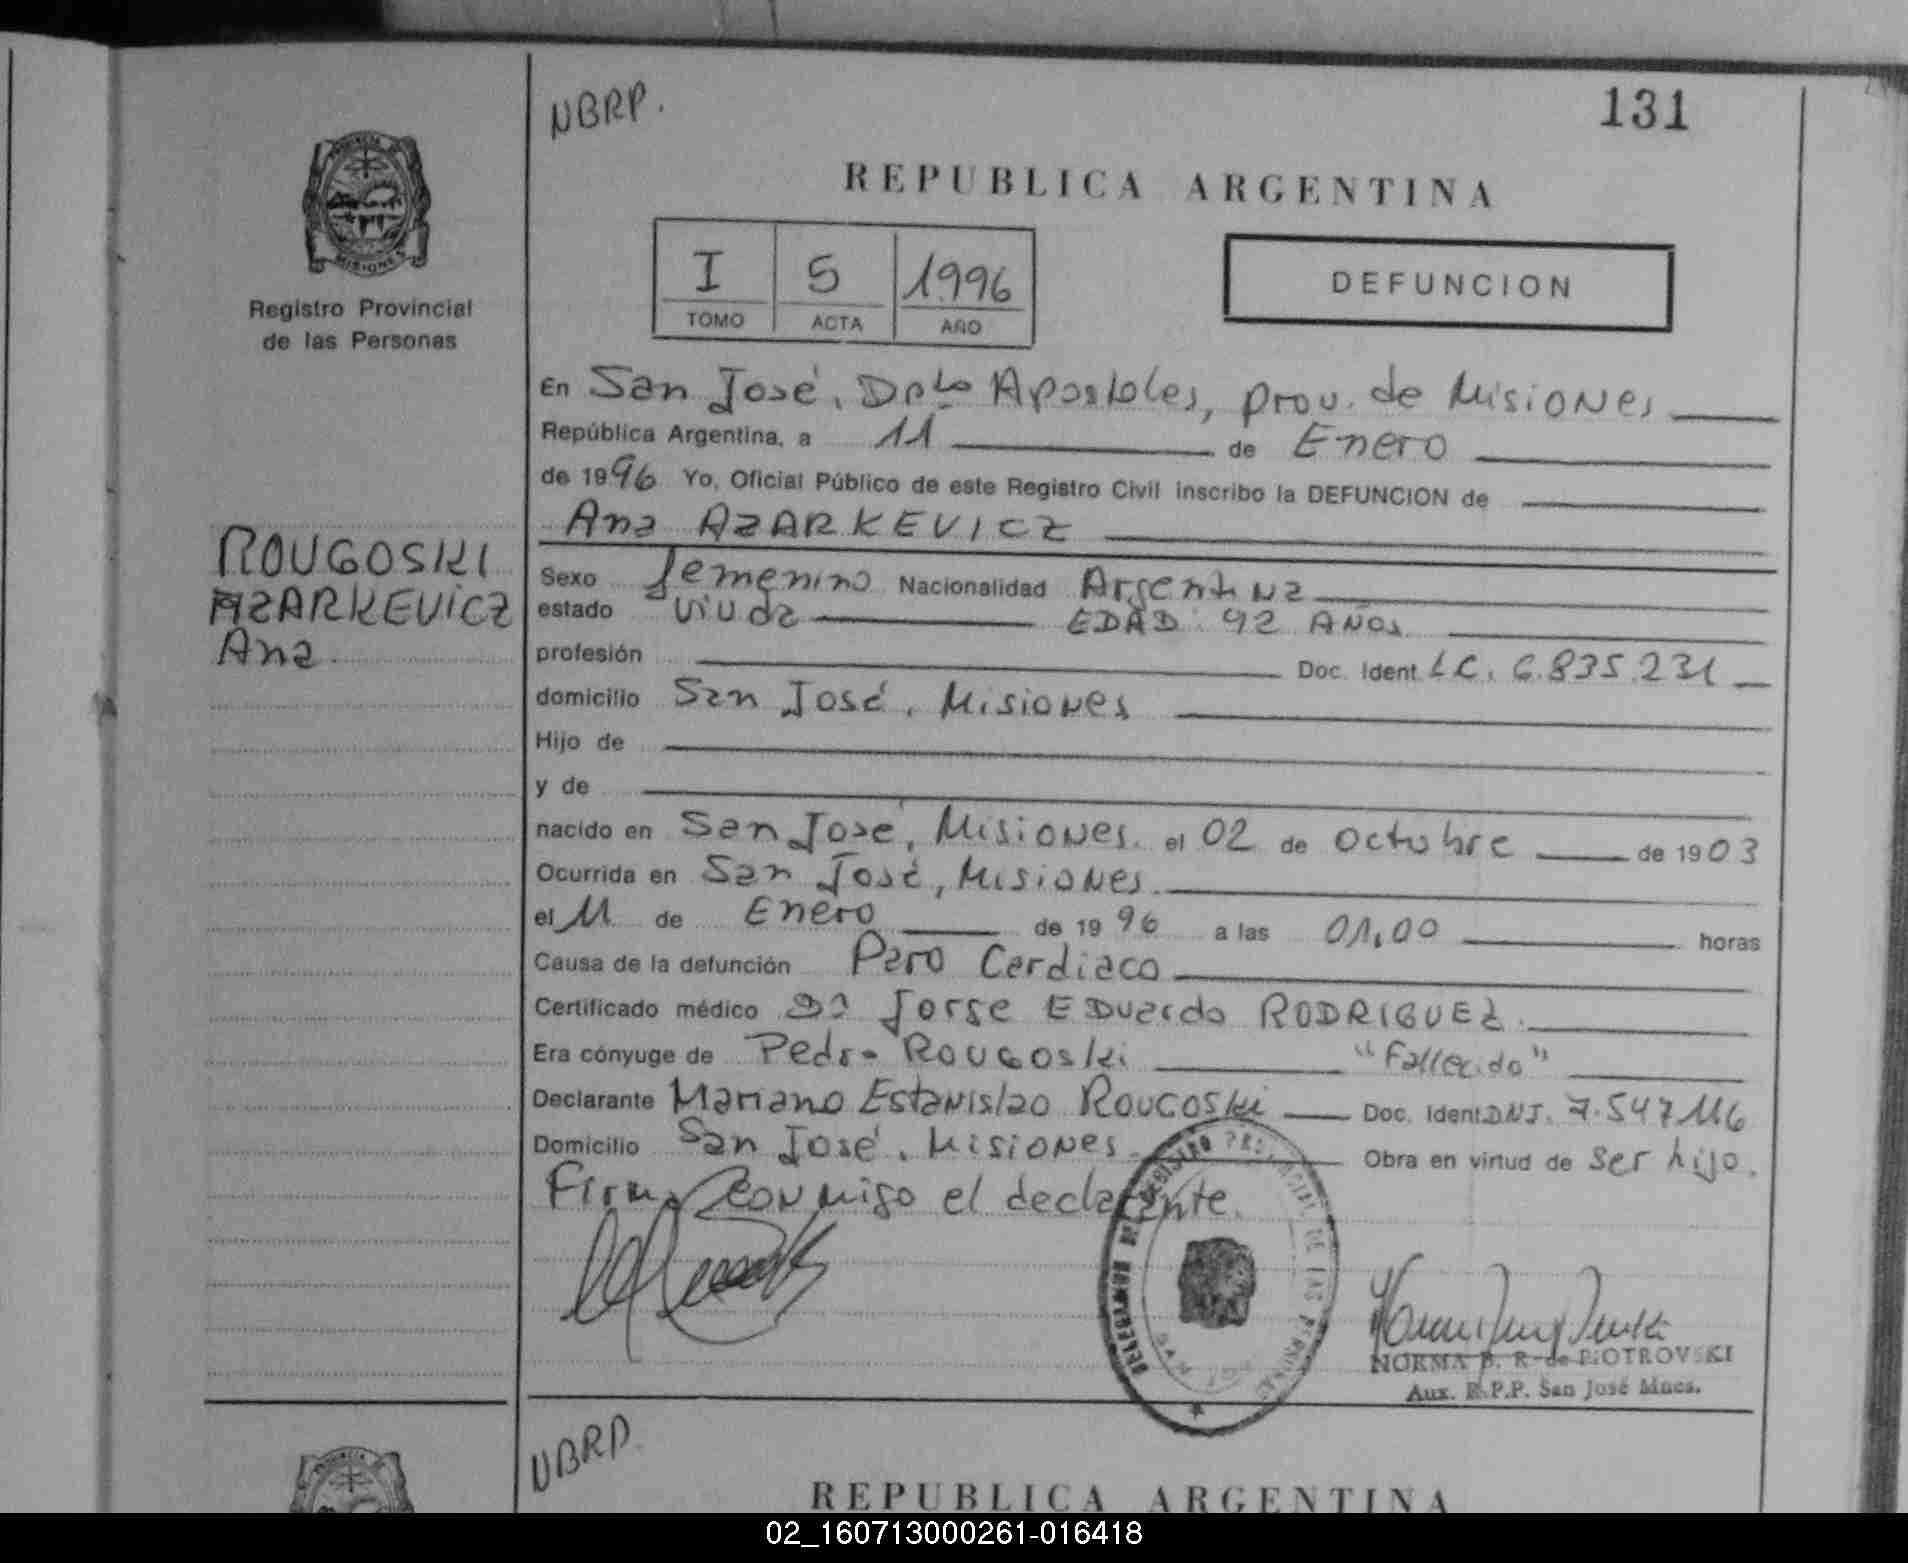 NBRP.
131
REPUBLICA ARGENTINA
PROVINCIA DE
MISIONES
Registro Provincial
de las Personas
I 5 1996
TOMO ACTA AÑO
DEFUNCION
En San José, Dpto Apostoles, prov. de Misiones
República Argentina, a 11 de Enero
de 1996 Yo, Oficial Público de este Registro Civil inscribo la DEFUNCION de
Ana AZARKEVICZ
ROUGOSKI
AZARKEVICZ
Ana
Sexo femenino Nacionalidad Argentina
estado viuda EDAD: 92 AÑOS
profesión Doc. Ident. LC. 6.835.231
domicilio San José, Misiones
Hijo de
y de
nacido en San José, Misiones. el 02 de Octubre de 1903
Ocurrida en San José, Misiones.
el 11 de Enero de 1996 a las 01,00 horas
Causa de la defunción Paro Cardiaco
Certificado médico Dr Jorge EDuardo RODRIGUEZ.
Era cónyuge de Pedro Rougoski "Fallecido"
Declarante Mariano Estanislao Rougoski Doc. Ident. DNI. 7.547.116
Domicilio San José, Misiones. Obra en virtud de ser hijo.
Firma conmigo el declarante.
REGISTRO PROVINCIAL DE LAS PERSONAS
NORMA B. R. de PIOTROVSKI
Aux. R.P.P. San José Mnes.
NBRP.
REPUBLICA ARGENTINA
02_160713000261-016418